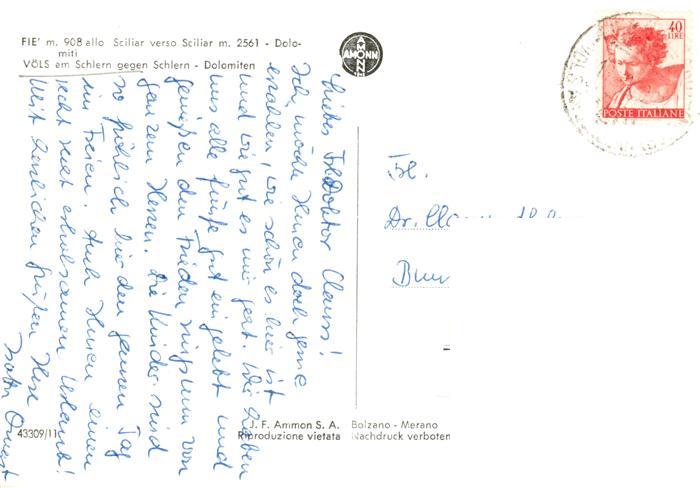 FIE' m. 908 allo Sciliar verso Sciliar m. 2561 - Dolo-
miti
VÖLS am Schlern gegen Schlern - Dolomiten
AMONN
40
LIRE
POSTE ITALIANE
Liebes Frl. Doktor Clauss!
Ich möchte Ihnen doch gerne
erzählen, wie schön es hier ist
und wie gut es uns geht. Wir haben
uns alle fünfe gut eingelebt und
genießen den Frieden rings um von
ganzem Herzen. Die Kinder sind
so fröhlich hier den ganzen Tag
im Freien. Auch Ihnen einen
recht recht erholsamen Urlaub!
Mit herzlichen Grüßen Ihre
Frl.
Dr.
43309/11
J. F. Ammon S. A. Bolzano - Merano
Riproduzione vietata Nachdruck verboten